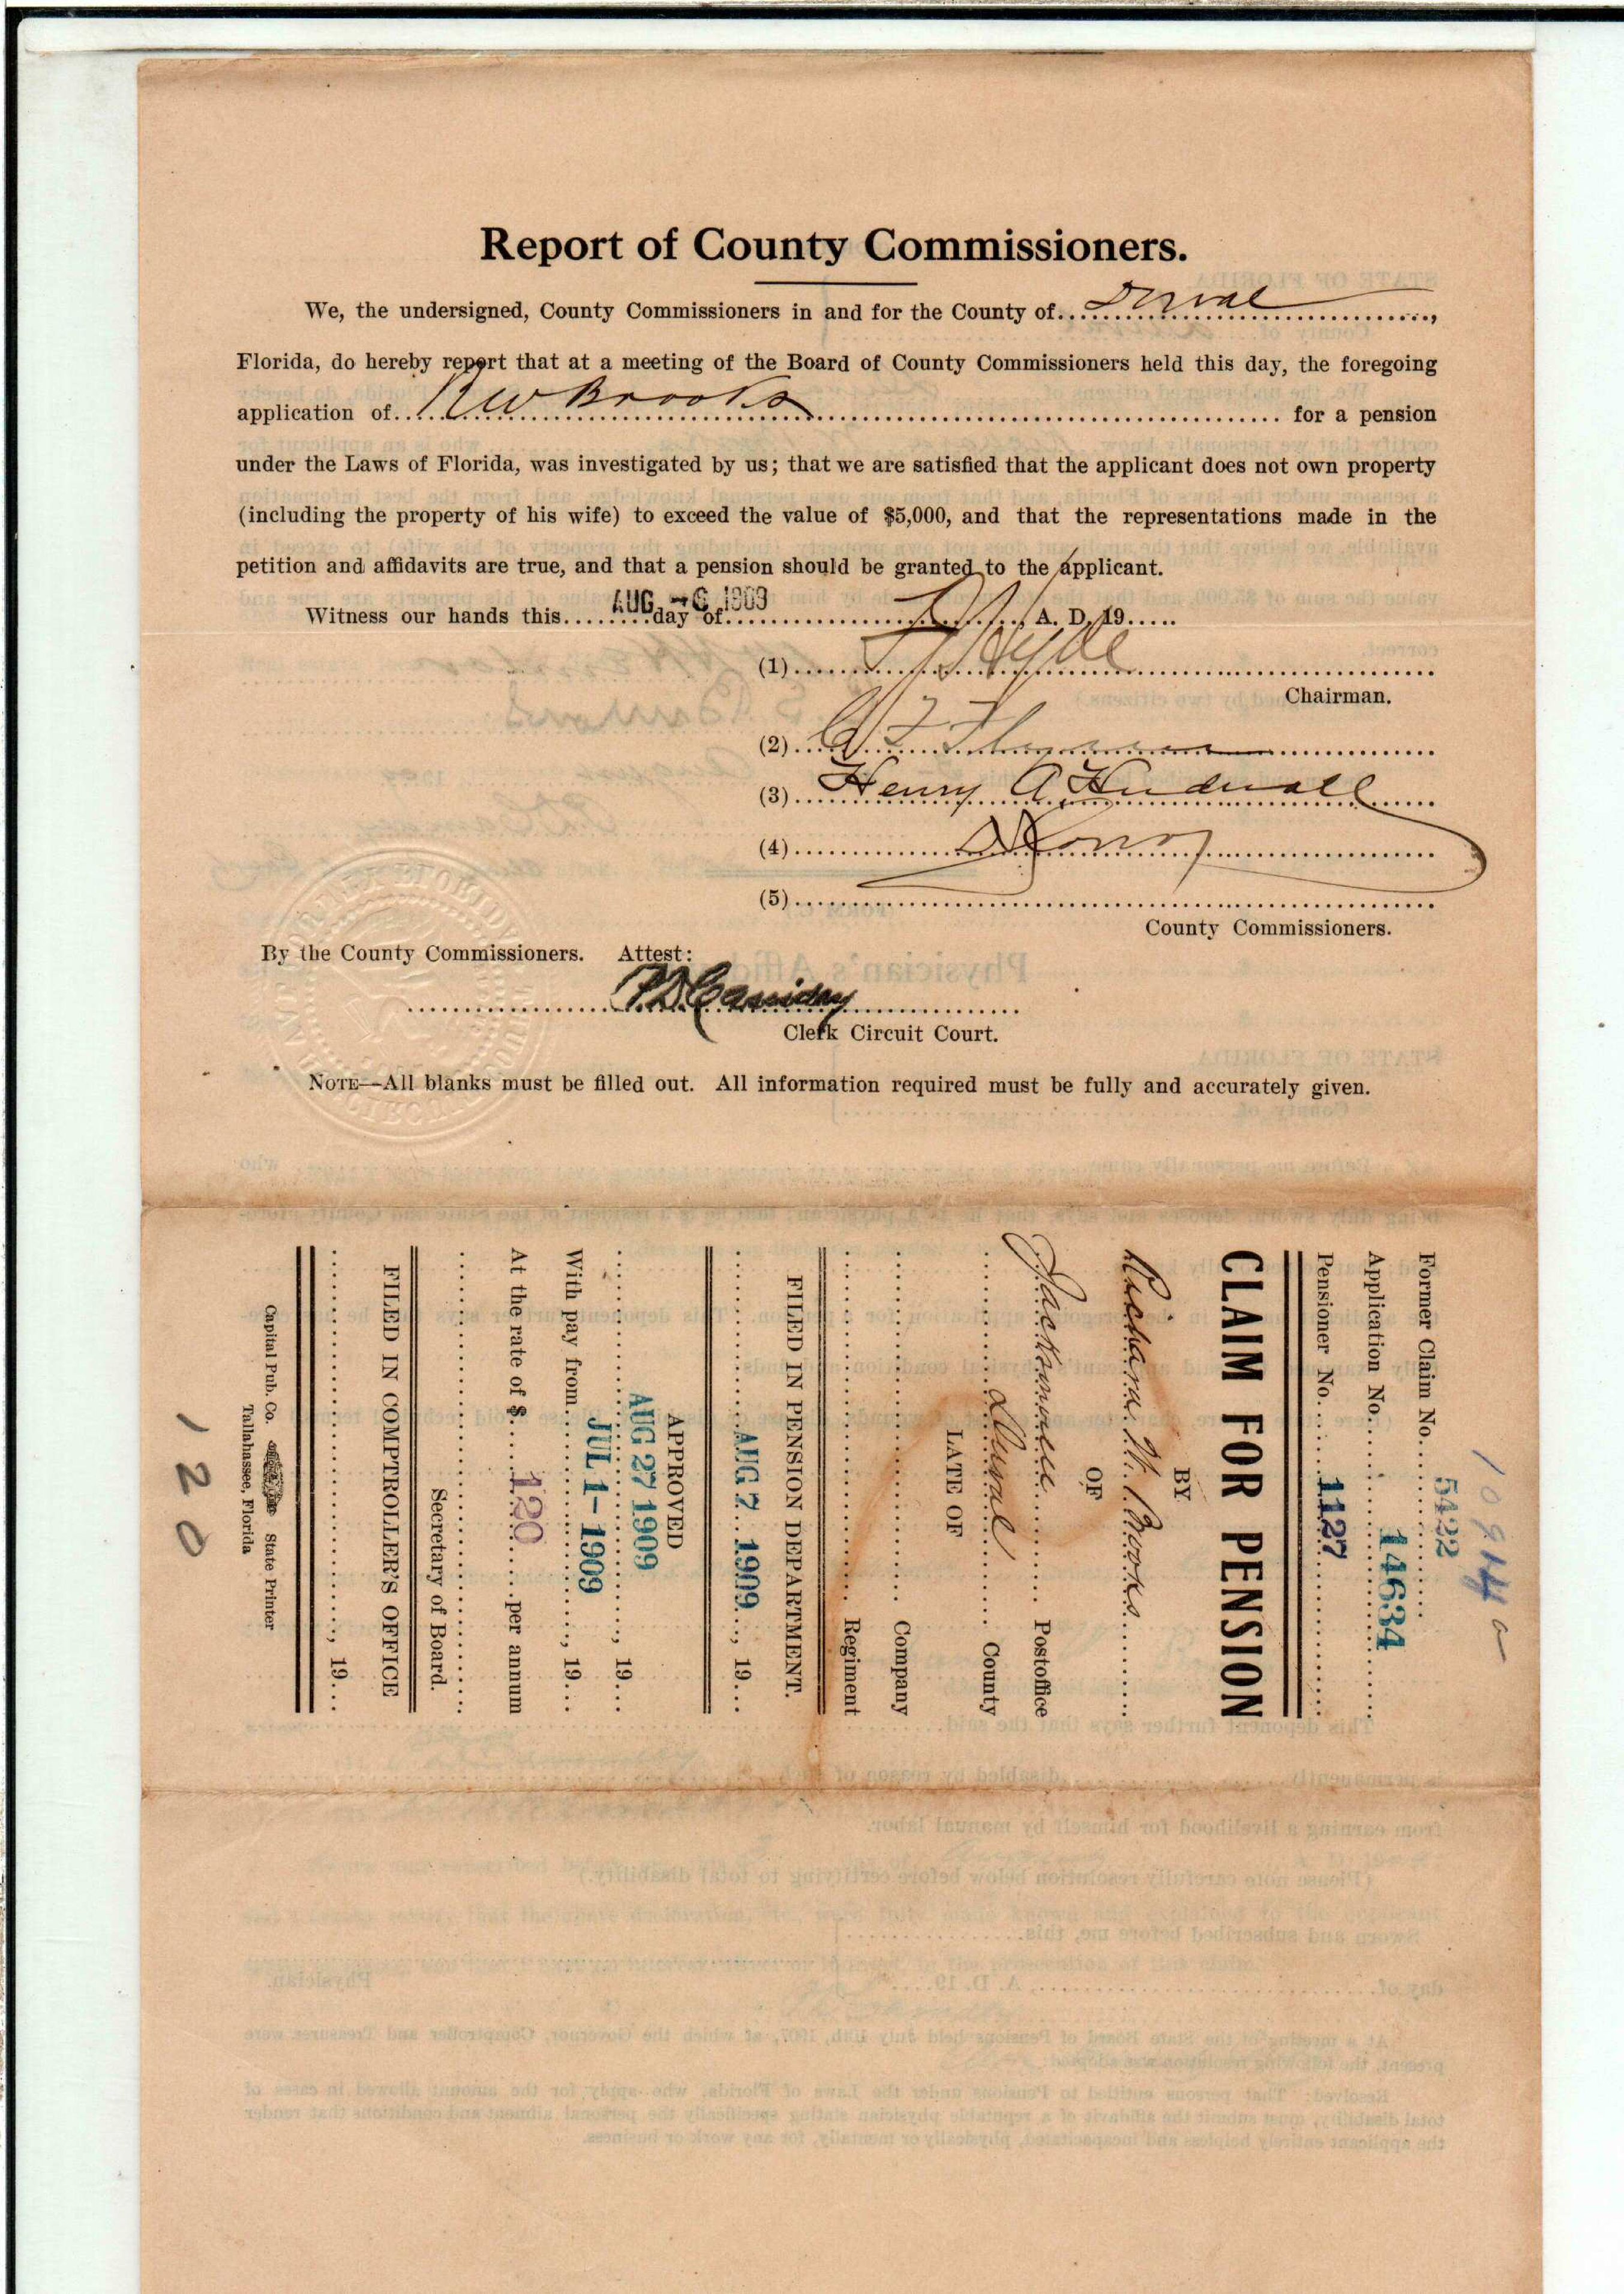 Report of County Commissioners.
We, the undersigned, County Commissioners in and for the County of Duval,
Florida, do hereby report that at a meeting of the Board of County Commissioners held this day, the foregoing
application of R W Brooks for a pension
under the Laws of Florida, was investigated by us; that we are satisfied that the applicant does not own property
(including the property of his wife) to exceed the value of $5,000, and that the representations made in the
petition and affidavits are true, and that a pension should be granted to the applicant.
Witness our hands this AUG -6 1909 day of A. D. 19
(1) Hyde
Chairman.
(2)
(3) Henry A Hudnall
(4)
(5)
County Commissioners.
By the County Commissioners. Attest:
P.D. Cassidey
Clerk Circuit Court.
NOTE—All blanks must be filled out. All information required must be fully and accurately given.
Former Claim No. 5422
Application No. 14634
Pensioner No. 1127
CLAIM FOR PENSION
BY
Richard W. Brooks
OF
Jacksonville Postoffice
Duval County
LATE OF
Company
Regiment
FILED IN PENSION DEPARTMENT.
AUG 7 1909, 19
APPROVED
AUG 27 1909, 19
With pay from JUL 1-1909, 19
At the rate of $ 120 per annum
Secretary of Board.
FILED IN COMPTROLLER'S OFFICE
, 19
Capital Pub. Co. State Printer
Tallahassee, Florida
120